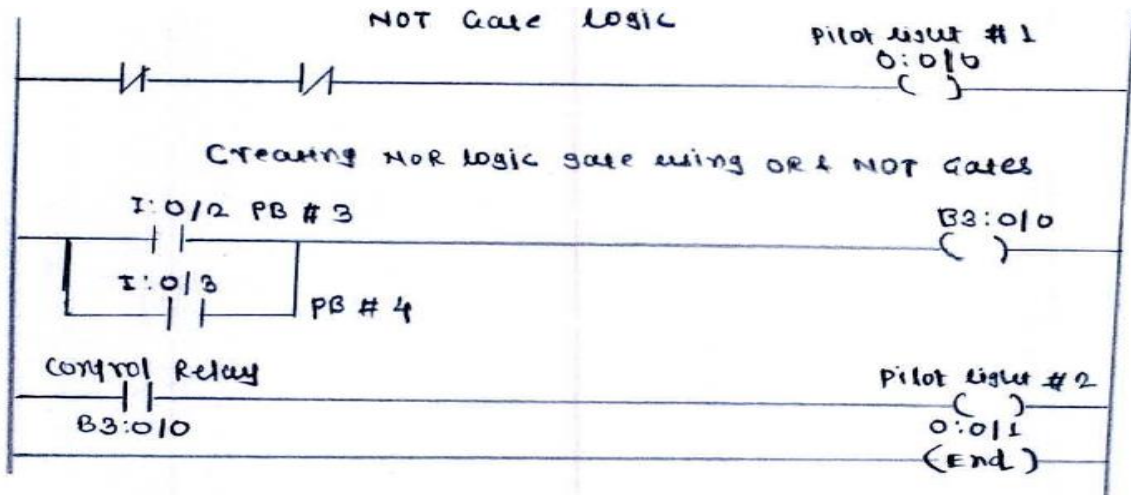 NOT Gate Logic
Pilot Light # 1
O:0/0
Creating NOR Logic gate using OR & NOT Gates
I:0/2 PB # 3
B3:0/0
I:0/3
PB # 4
Control Relay
Pilot Light # 2
B3:0/0
O:0/1
(End)